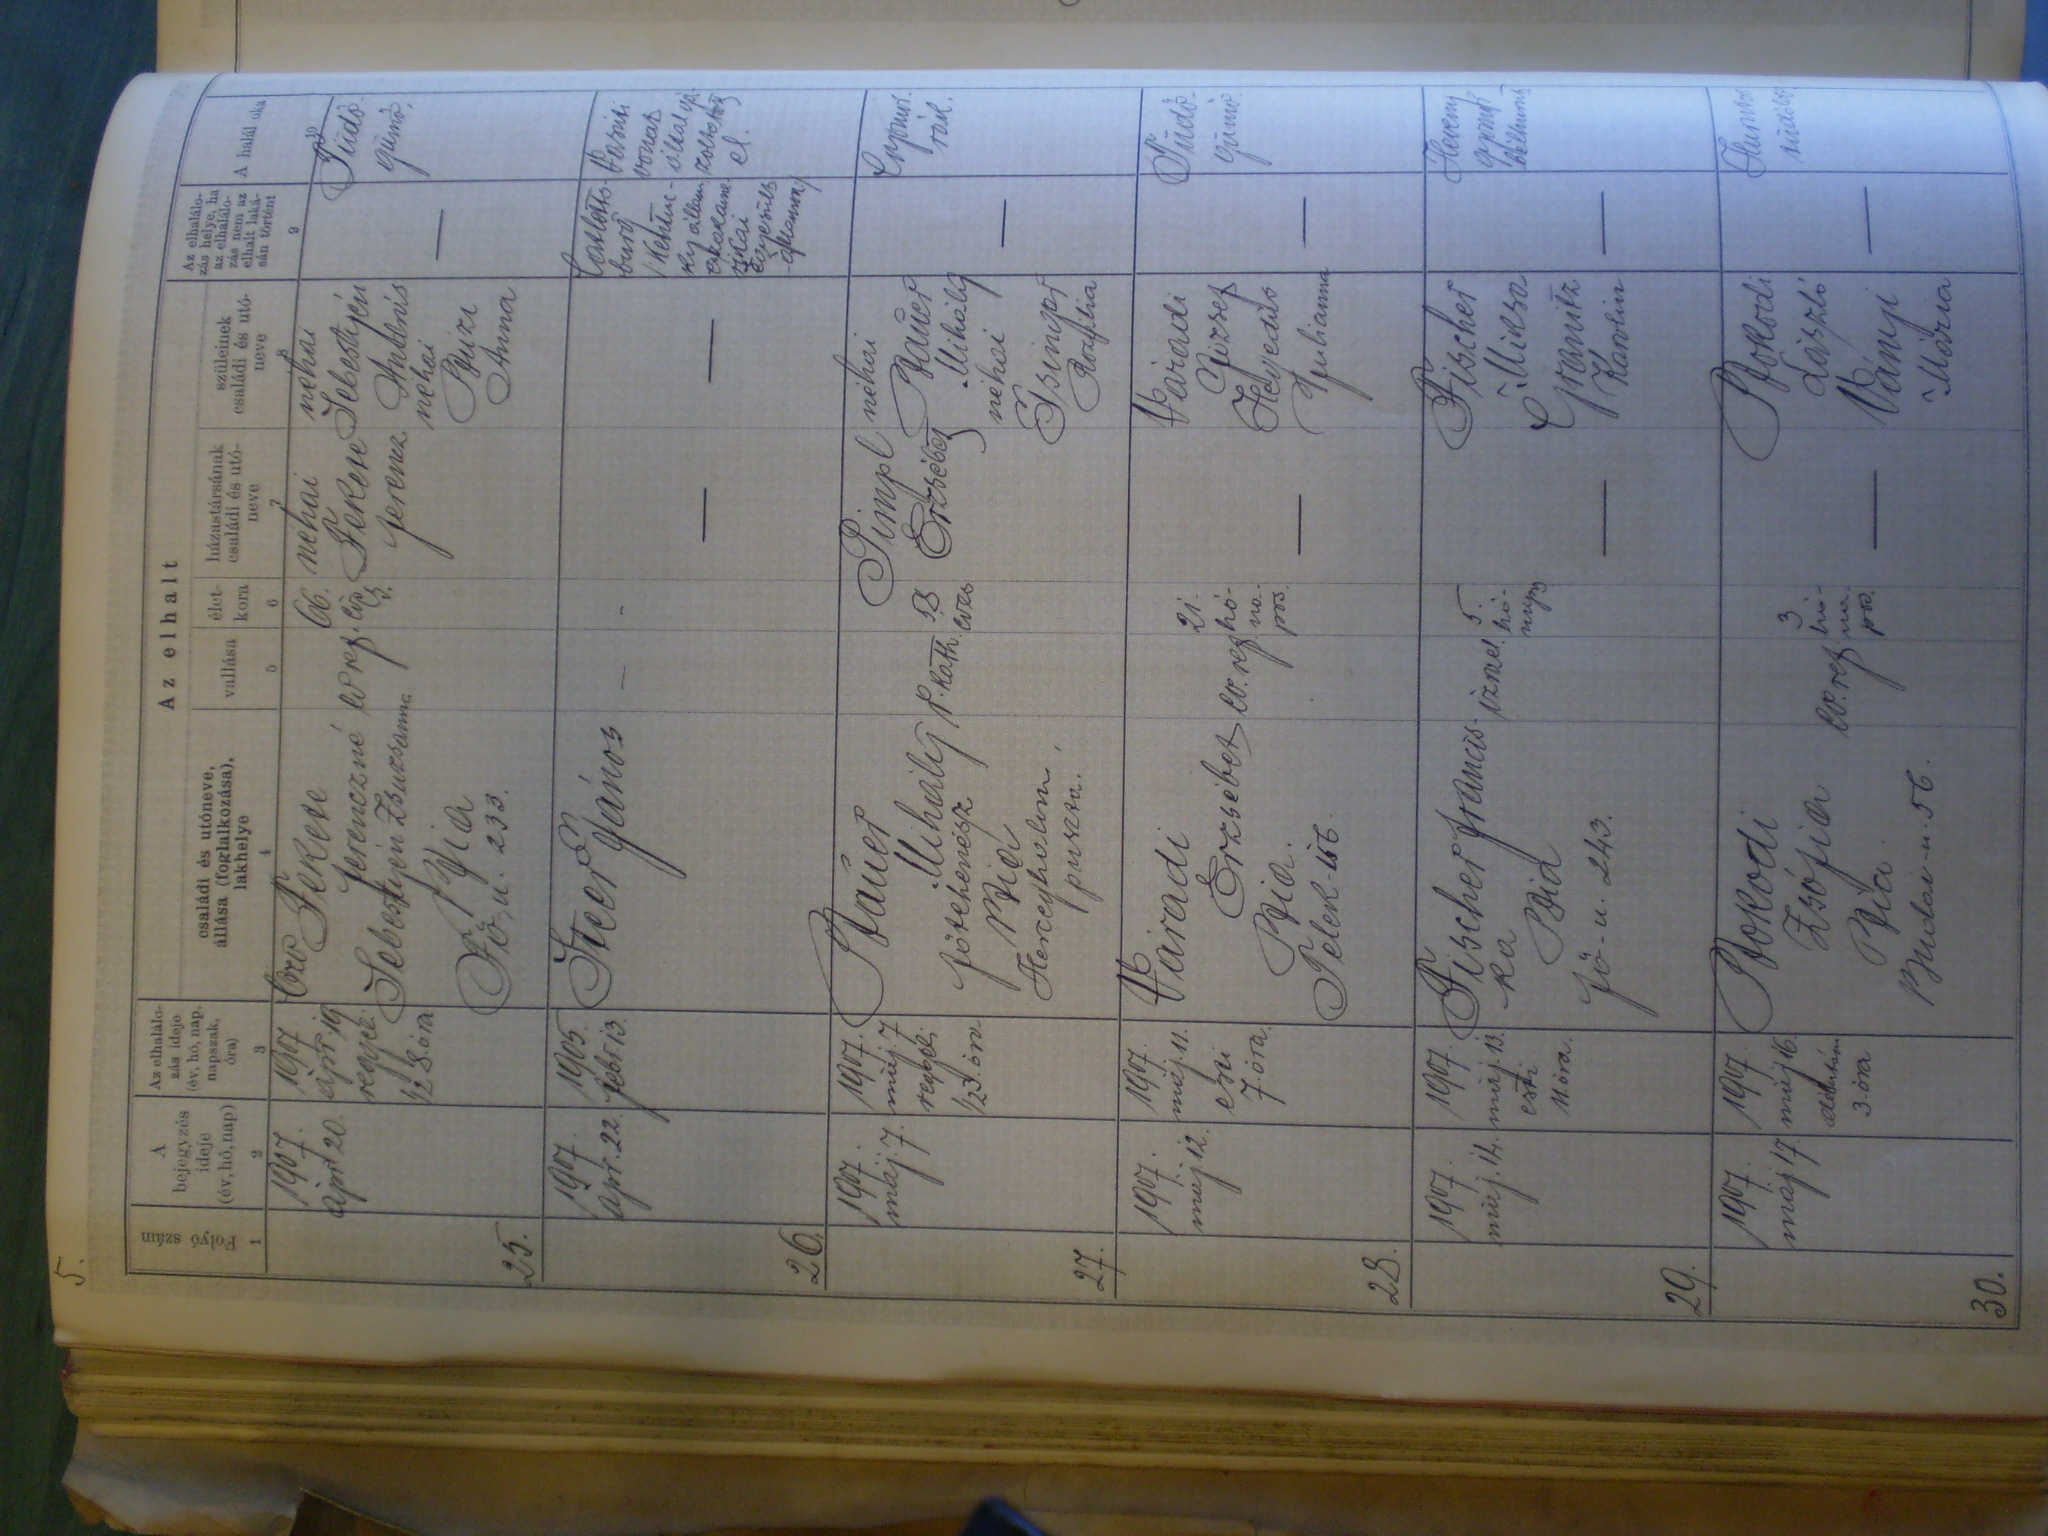 5.
Az elhalt
Folyó szám
A bejegyzés ideje (év, hó, nap)
Az elhalálozás ideje (év, hó, nap, napszak, óra)
családi és utóneve, állása (foglalkozása), lakhelye
vallása
életkora
házastársának családi és utóneve
szüleinek családi és utóneve
Az elhalálozás helye, ha az elhalálozás nem az elhalt lakásán történt
A halál oka
1 2 3 4 5 6 7 8 9 10
25.
1907.
ápr. 20.
1907
ápr. 19
reggeli
1/2 8. óra
özv Fekete
Ferenczné
Sebestyén Zsuzsanna
Bia
Fő-u. 233.
ev ref.
66. év
néhai
Fekete
Ferencz
néhai
Sebestyén
néhai
Anna
—
Tüdő
gümő.
26.
1907
ápr. 22.
1905.
febr. 13.
János
—
—
—
—
Vasúti
vonat
által
el.
27.
1907.
máj. 7.
1907.
máj 7
reggeli
1/2 3. óra
Bauer
Mihály
Bia
Herczeghalom
puszta.
r. kath.
58
éves
Pimpl
Erzsébet
néhai
Bauer
Mihály
néhai
—
28.
1907.
máj 12.
1907.
máj. 11.
esti
7. óra.
Váradi
Erzsébet
Bia.
Telek
ev. ref
21.
hó-
na-
pos.
—
Váradi
József
Hegedüs
Julianna
—
Tüdő-
gümő
29.
1907
máj. 14.
1907.
máj. 13.
esti
11 óra.
Fischer Francis-
ka
Bia
fő-u. 243.
izrael.
5.
hó-
napos
—
Fischer
Miksa
Granitz
Karolin
—
Heveny
gyomor
bélhurut
30.
1907.
máj 17.
1907.
máj 16.
délután
3. óra
Bokodi
Zsófia
Bia.
Budai-u. 56.
ev. ref
3
hó-
na-
pos.
—
Bokodi
László
Ványi
Mária
—